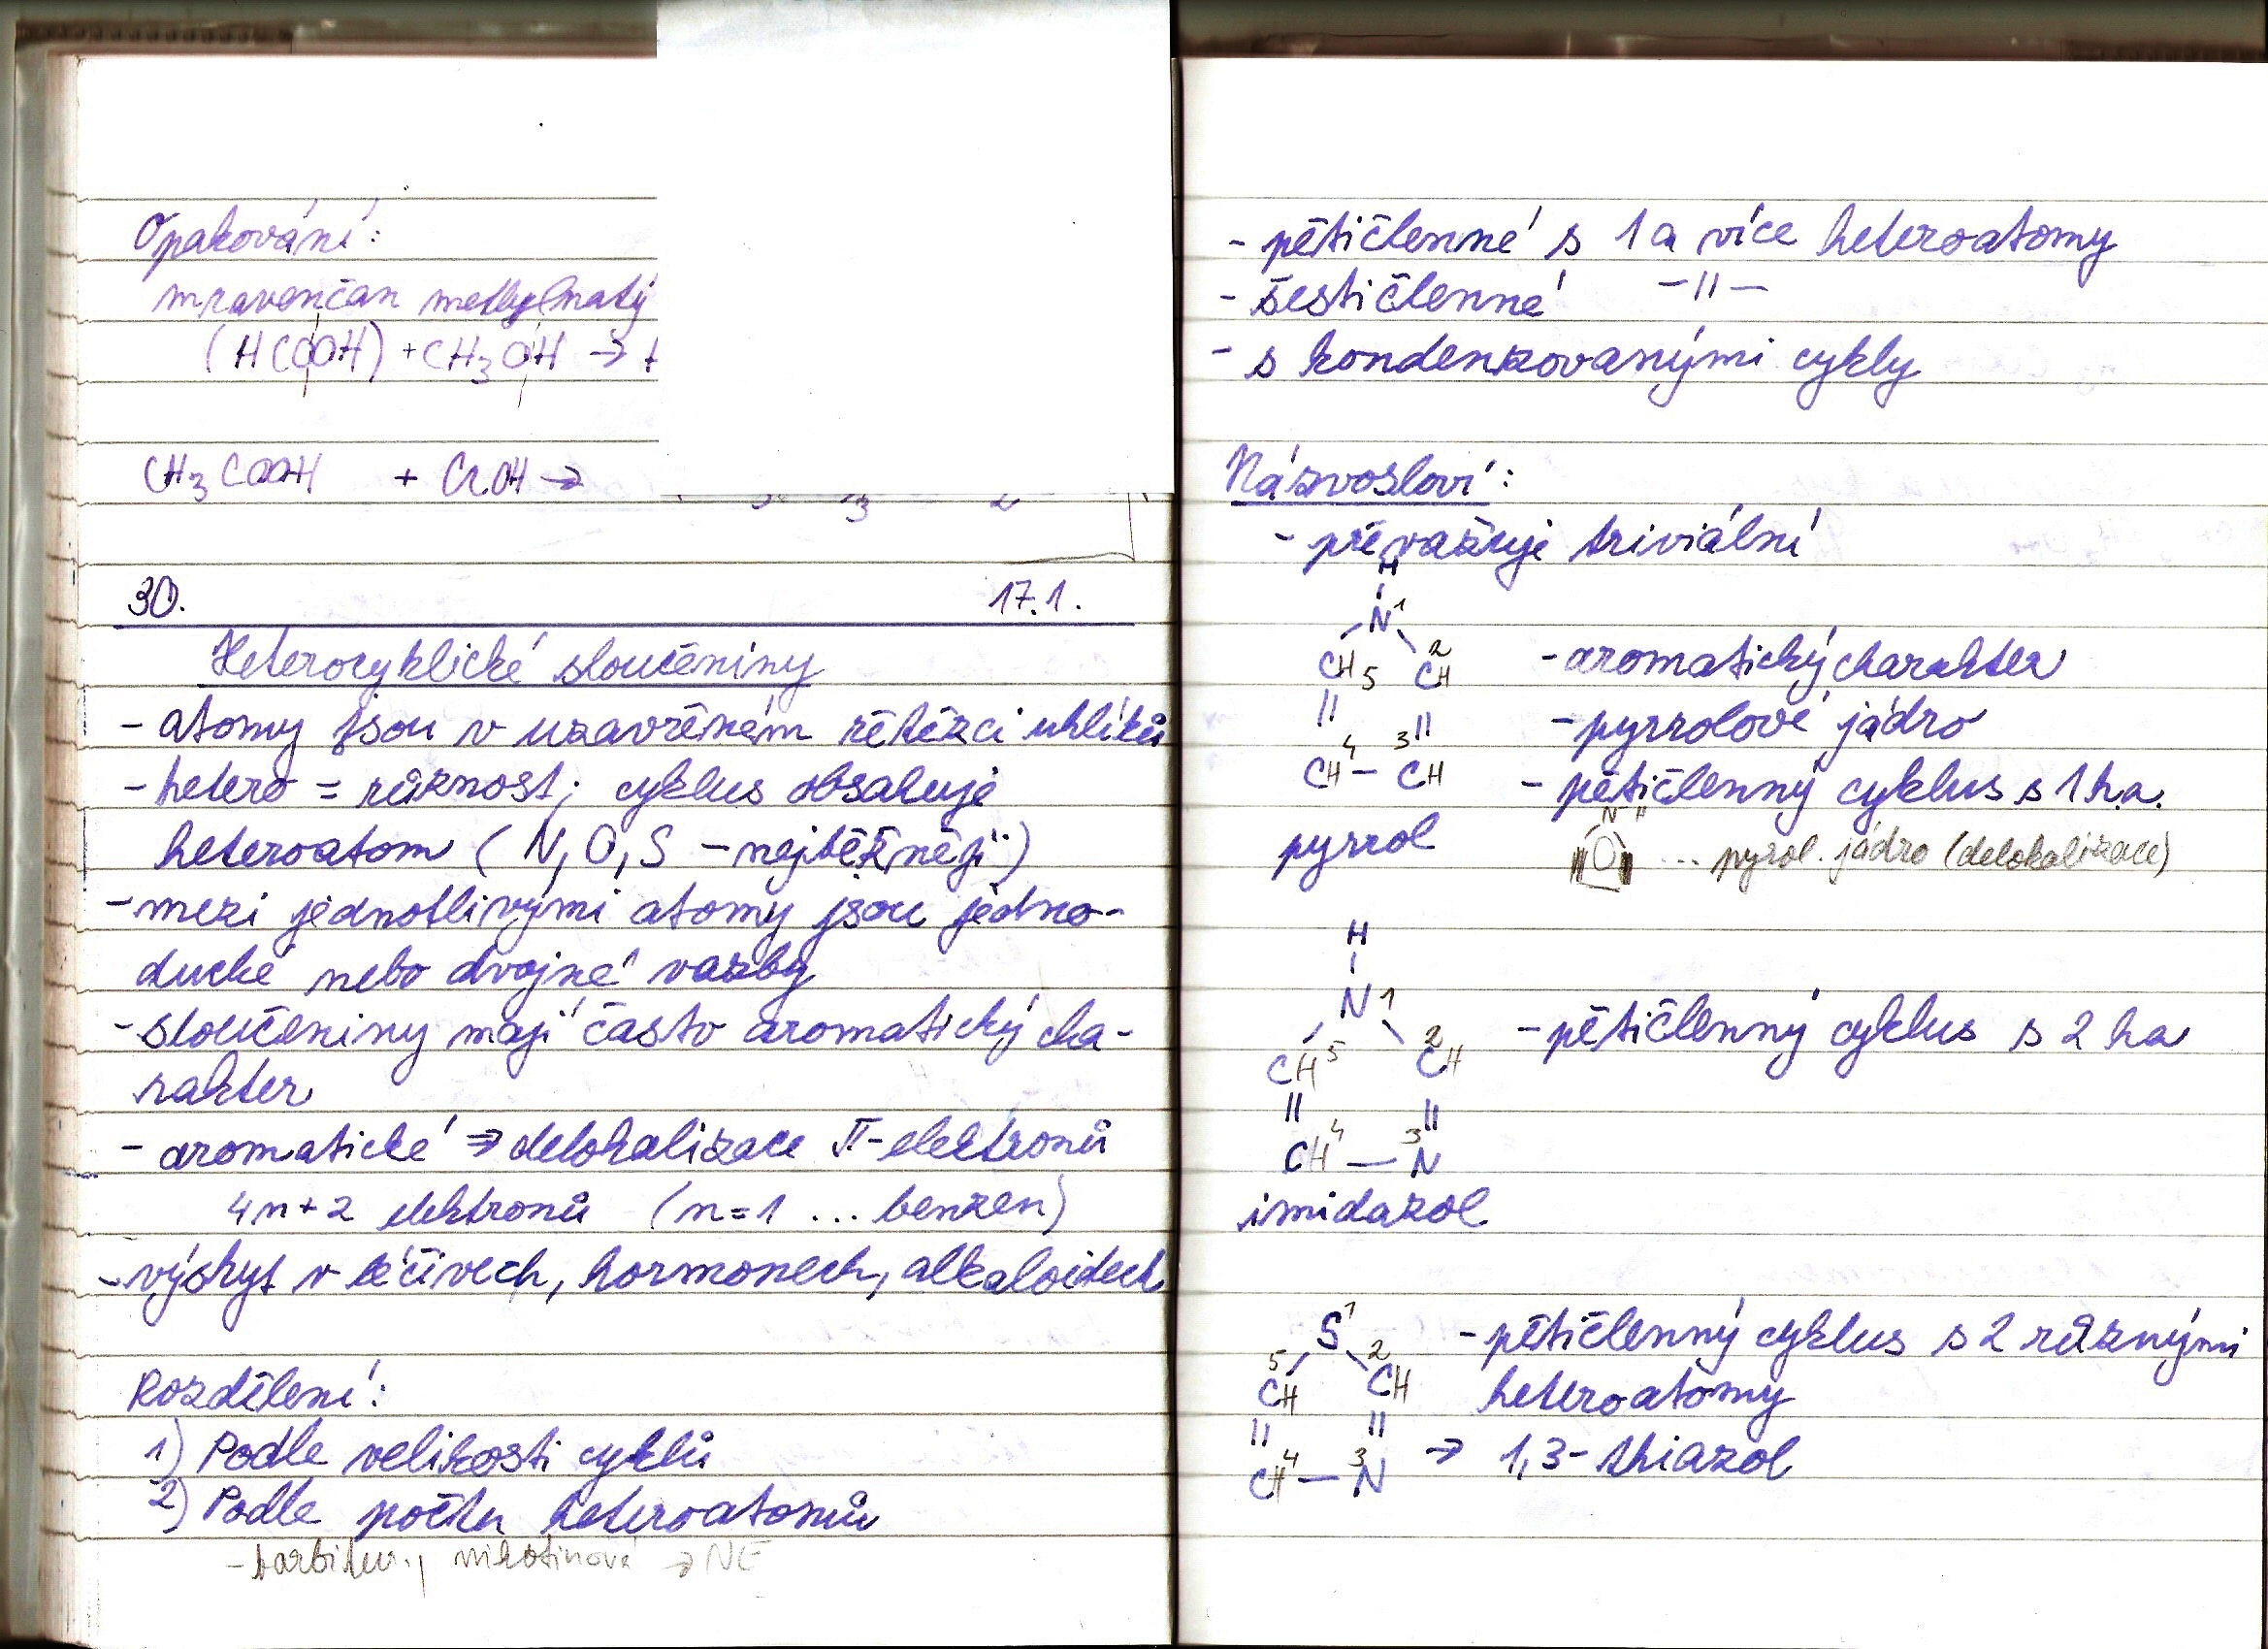 Opakování:
mravenčan methylnatý
(HCOOH) + CH3OH →
CH3COOH + CrOH →
30. 17.1.
Heterocyklické sloučeniny
- atomy jsou v uzavřeném řetězci uhlíků
- hetero = různost; cyklus obsahuje
heteroatom (N, O, S - nejběžnější)
- mezi jednotlivými atomy jsou jedno-
duché nebo dvojné vazby
- sloučeniny mají často aromatický cha-
rakter
- aromatické ⇒ delokalizace π-elektronů
4n+2 elektronů (n=1 ... benzen)
- výskyt v léčivech, hormonech, alkaloidech
Rozdělení:
1) Podle velikosti cyklů
2) Podle počtu heteroatomů
- barbitur., nikotinová → NE
- pětičlenné s 1 a více heteroatomy
- šestičlenné -11-
- s kondenzovanými cykly
Názvosloví:
- převažuje triviální
H
N 1
CH 5 2 CH
- aromatický charakter
- pyrrolové jádro
4 3
CH - CH
- pětičlenný cyklus s 1 h.a.
pyrrol
N H
... pyrol. jádro (delokalizace)
H
N 1
CH 5 2 CH
- pětičlenný cyklus s 2 ha
4 3
CH - N
imidazol
S 1
5 2
CH CH
- pětičlenný cyklus s 2 různými
heteroatomy
4 3
CH - N → 1,3-thiazol